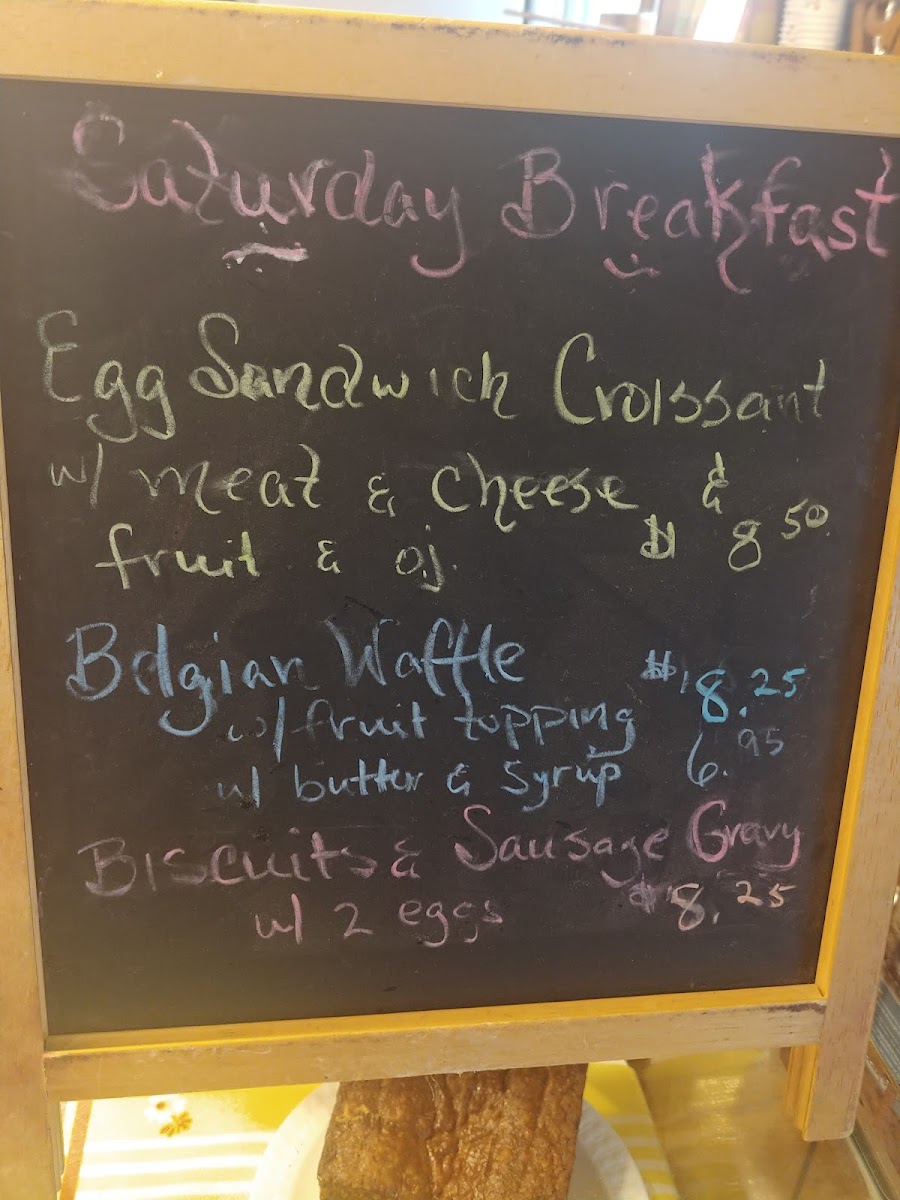 Saturday Breakfast
Egg Sandwich Croissant
w/ meat & cheese &
fruit & oj. $ 8 50
Belgian Waffle $ 8.25
w/ fruit topping
w/ butter & syrup 6.95
Biscuits & Sausage Gravy
w/ 2 eggs $ 8.25